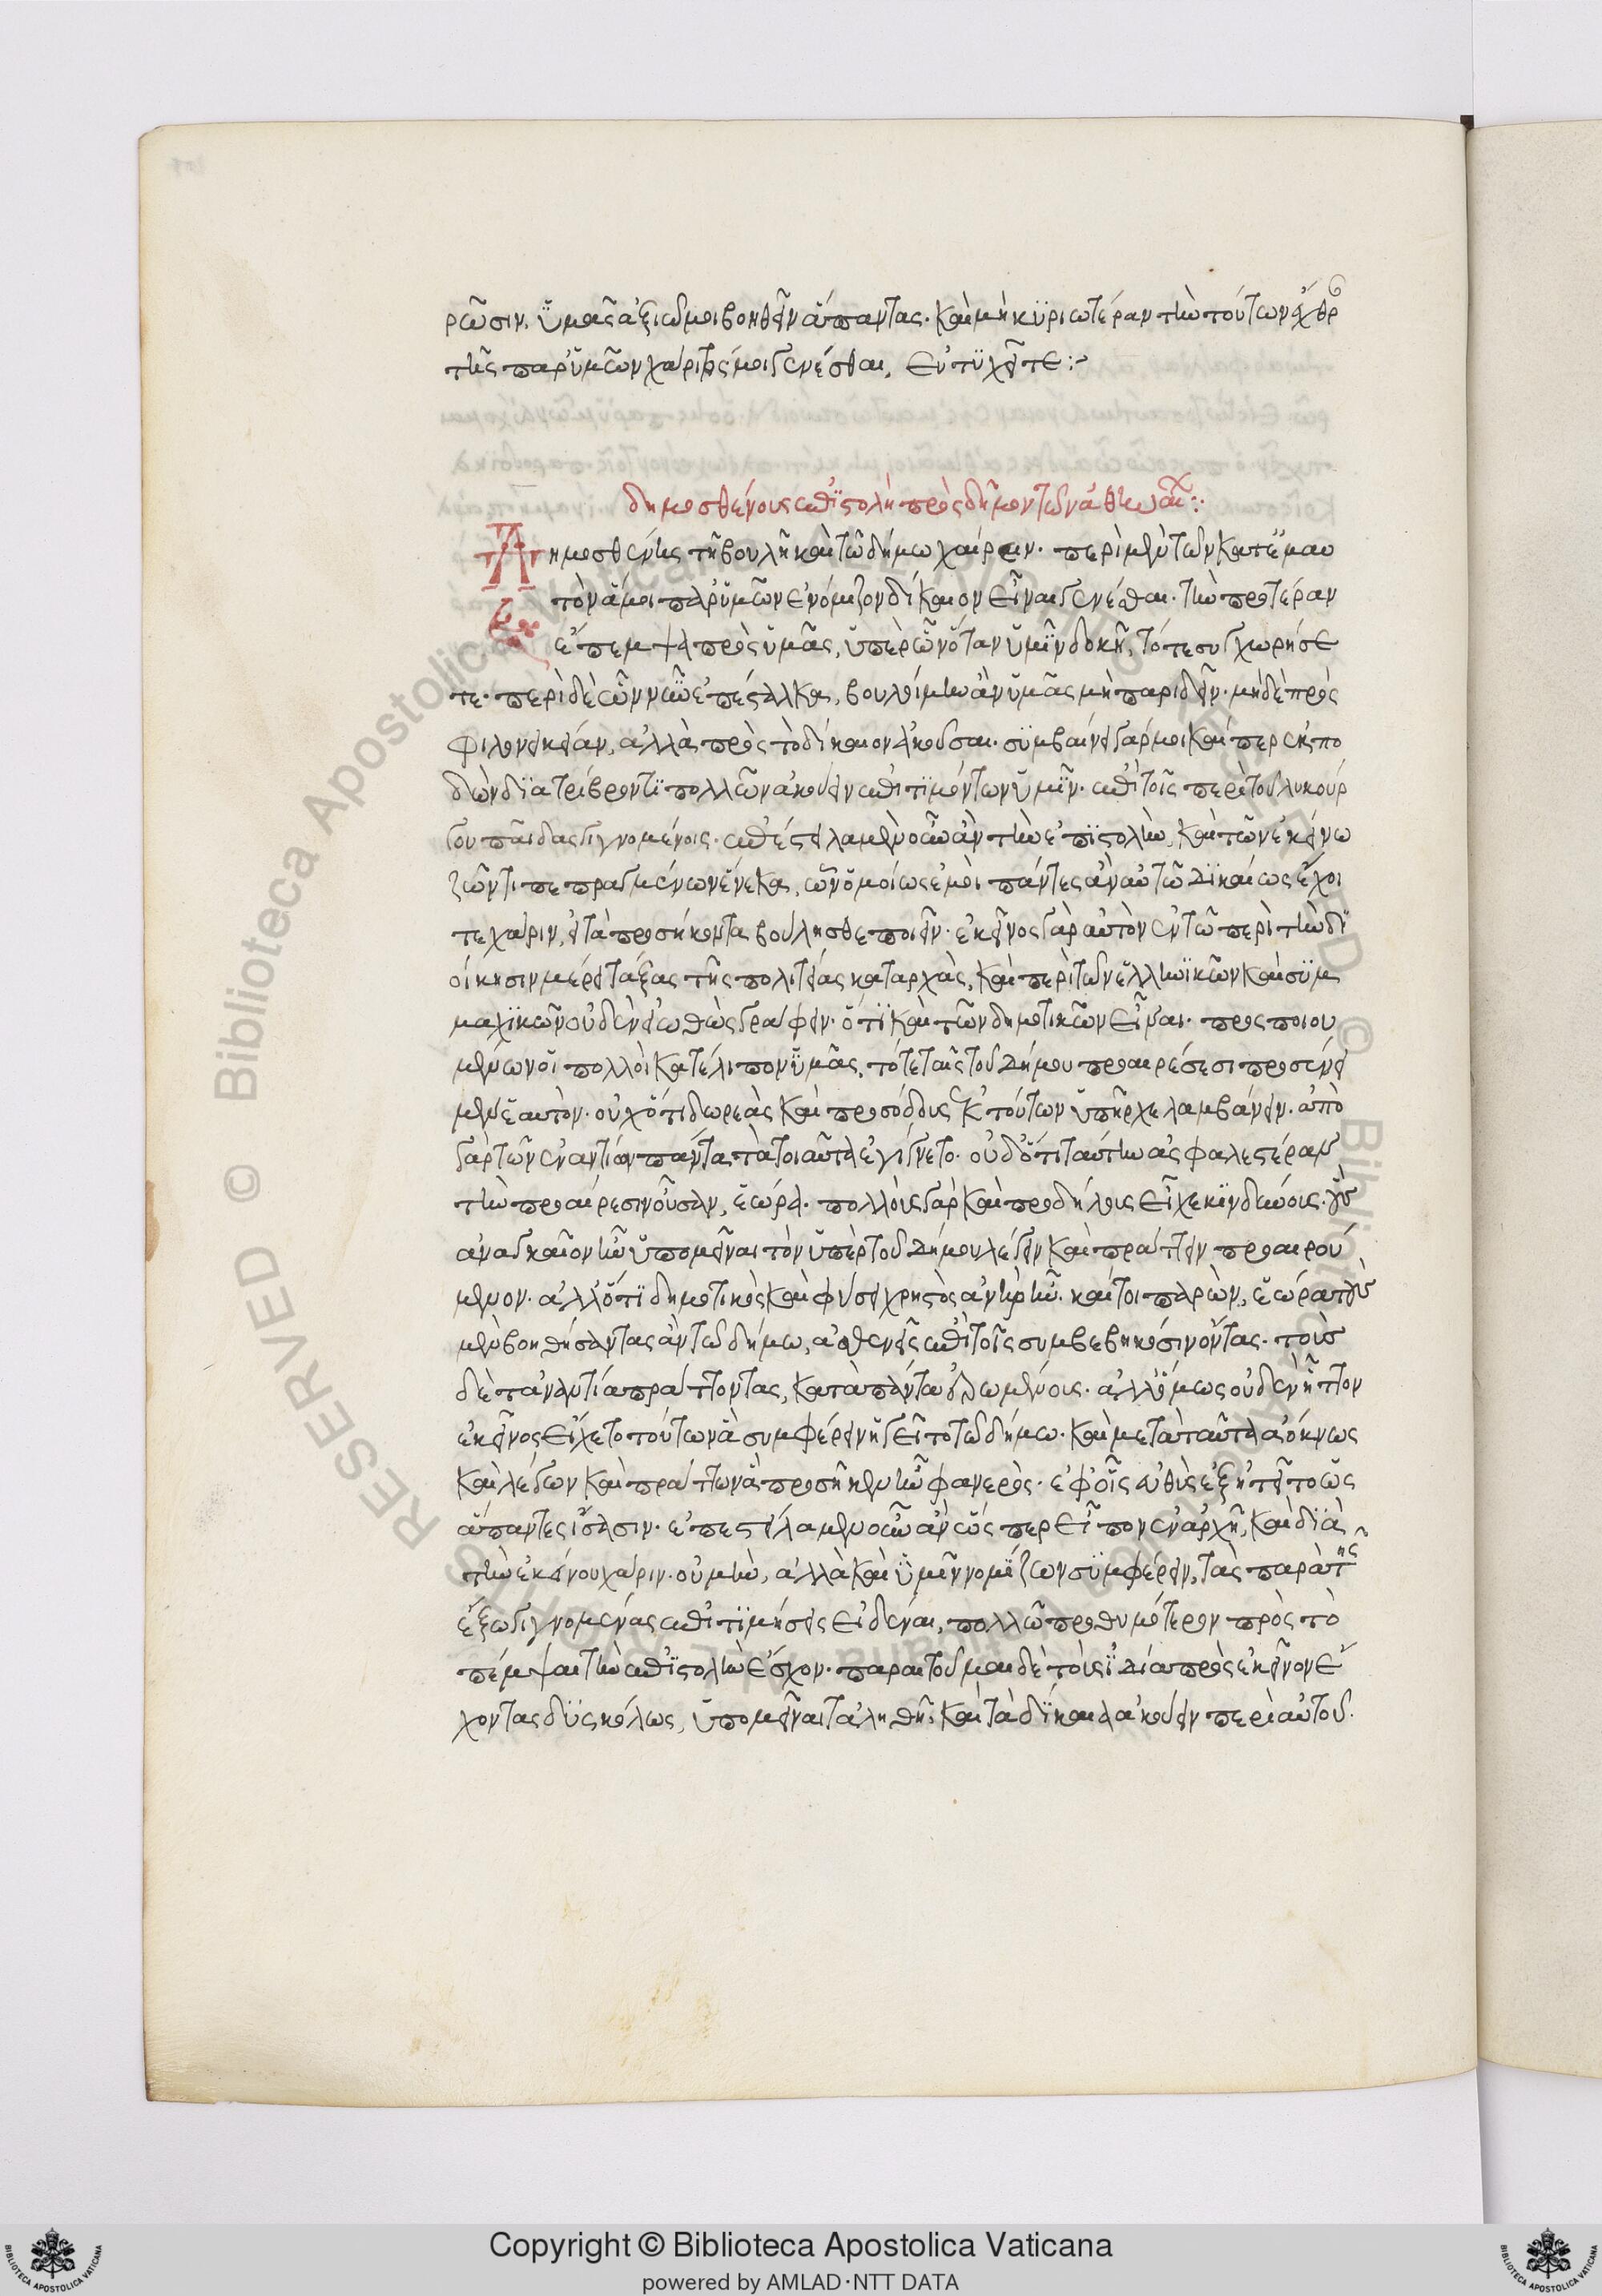 ρῶσιν. ὑμᾶς ἀξιῶ μοι βοηθεῖν ἅπαντας. καὶ μὴ κυριωτέραν τὴν τούτων ἔχθρ
τῆς παρ' ὑμῶν χάριτός μοι γενέσθαι, εὐτυχεῖτε:~
δημοσθένους ἐπιστολὴ πρὸς δῆμον τῶν ἀθηναί:·
Δημοσθένης τῆ βουλῆ καὶ τῶ δήμω χαίρειν. περὶ μὲν τῶν κατ' ἐμαυ
τὸν ἅ μοι παρ' ὑμῶν ἐνόμιζον δίκαιον εἶναι γενέσθαι. τὴν προτέραν
ἔπεμψα πρὸς ὑμᾶς, ὑπὲρ ὧν ὅταν ὑμῖν δοκῆ, τότε συγχωρήσε
τε. περὶ δὲ ὧν νῦν ἐπέσταλκα, βουλοίμην ἂν ὑμᾶς μὴ παριδεῖν. μηδὲ πρὸς
φιλονεικείαν, ἀλλὰ πρὸς τὸ δίκαιον ἀκοῦσαι. συμβαίνει γάρ μοι καίπερ ἐκπο
δὼν διατρίβοντι πολλῶν ἀκούειν ἐπιτιμόντων ὑμῖν. ἐπὶ τοῖς περὶ τοὺς λυκούρ
γου παῖδας γιγνομένοις. ἐπέστειλα μὲν οὖν ἂν τὴν ἐπιστολὴν, καὶ τῶν ἐκείνω
ζῶντι πεπραγμένων ἕνεκα, ὧν ὁμοίως ἐμοὶ πάντες ἂν αὐτῶ δικαίως ἔχοι
τε χάριν, εἰ τὰ προσήκοντα βούλησθε ποιεῖν. ἐκεῖνος γὰρ αὑτὸν ἐν τῶ περὶ τὴν δι
οίκησιν μέρει τάξας τῆς πολιτείας καταρχὰς, καὶ περὶ τῶν ἑλληνικῶν καὶ συμ
μαχικῶν οὐδὲν εἰωθὼς γράφειν. ὅτι καὶ τῶν δημοτικῶν εἶναι. προςποιου
μένων οἱ πολλοὶ κατέλιπον ὑμᾶς, τότε ταῖς τοῦ δήμου προαιρέσεσι προσένει
μεν ἑαυτὸν. οὐχ ὅτι δωρεὰς καὶ προσόδους ἐκ τούτων ὑπῆρχε λαμβάνειν. ἀπὸ
γὰρ τῶν ἐναντίων πάντα τὰ τοιαῦτα ἐγίγνετο. οὐδ' ὅτι ταύτην ἀσφαλεστέραν
τὴν προαίρεσιν οὖσαν, ἑώρα. πολλοὺς γὰρ καὶ προδήλους εἶχε κινδύνους. οὓς
ἀναγκαῖον ἦν ὑπομεῖναι τὸν ὑπὲρ τοῦ δήμου λέγειν καὶ πράττειν προαιρού
μενον. ἀλλ' ὅτι δημοτικὸς καὶ φύσει χρηστὸς ἀνὴρ ἦν. καίτοι παρὼν, ἑώρα τοὺς
μὲν βοηθήσαντας ἂν τῶ δήμω, ἀσθενεῖς ἐπὶ τοῖς συμβεβηκόσιν ὄντας. τοὺς
δὲ τἀναντία πράττοντας, κατὰ πάντα ἐρρωμένους. ἀλλ' ὅμως οὐδὲν ἧττον
ἐκεῖνος εἴχετο τούτων ἃ συμφέρειν ἡγεῖτο τῶ δήμω. καὶ μετὰ ταῦτα ἀόκνως
καὶ λέγων καὶ πράττων ἃ προσῆκεν ἦν φανερὸς. ἐφ' οἷς εὐθὺς ἐξητεῖτο ὡς
ἅπαντες ἴσασιν. ἐπέστειλα μὲν οὖν ἂν ὥσπερ εἶπον ἐν ἀρχῆ, καὶ διὰ
τὴν ἐκείνου χάριν. οὐ μὴν, ἀλλὰ καὶ ὑμῖν νομίζων συμφέρειν, τὰς παρὰ τῆς
ἔξω γιγνομένας ἐπιτιμήσεις εἰδέναι, πολλῶ προθυμότερον πρὸς τὸ
πέμψαι τὴν ἐπιστολὴν ἔσχον. παραιτοῦμαι δὲ τοὺς ἰδία πρὸς ἐκεῖνον ἔ
χοντας δυσκόλως, ὑπομεῖναι τἀληθῆ καὶ τὰ δίκαια ἀκούειν περὶ αὐτοῦ.